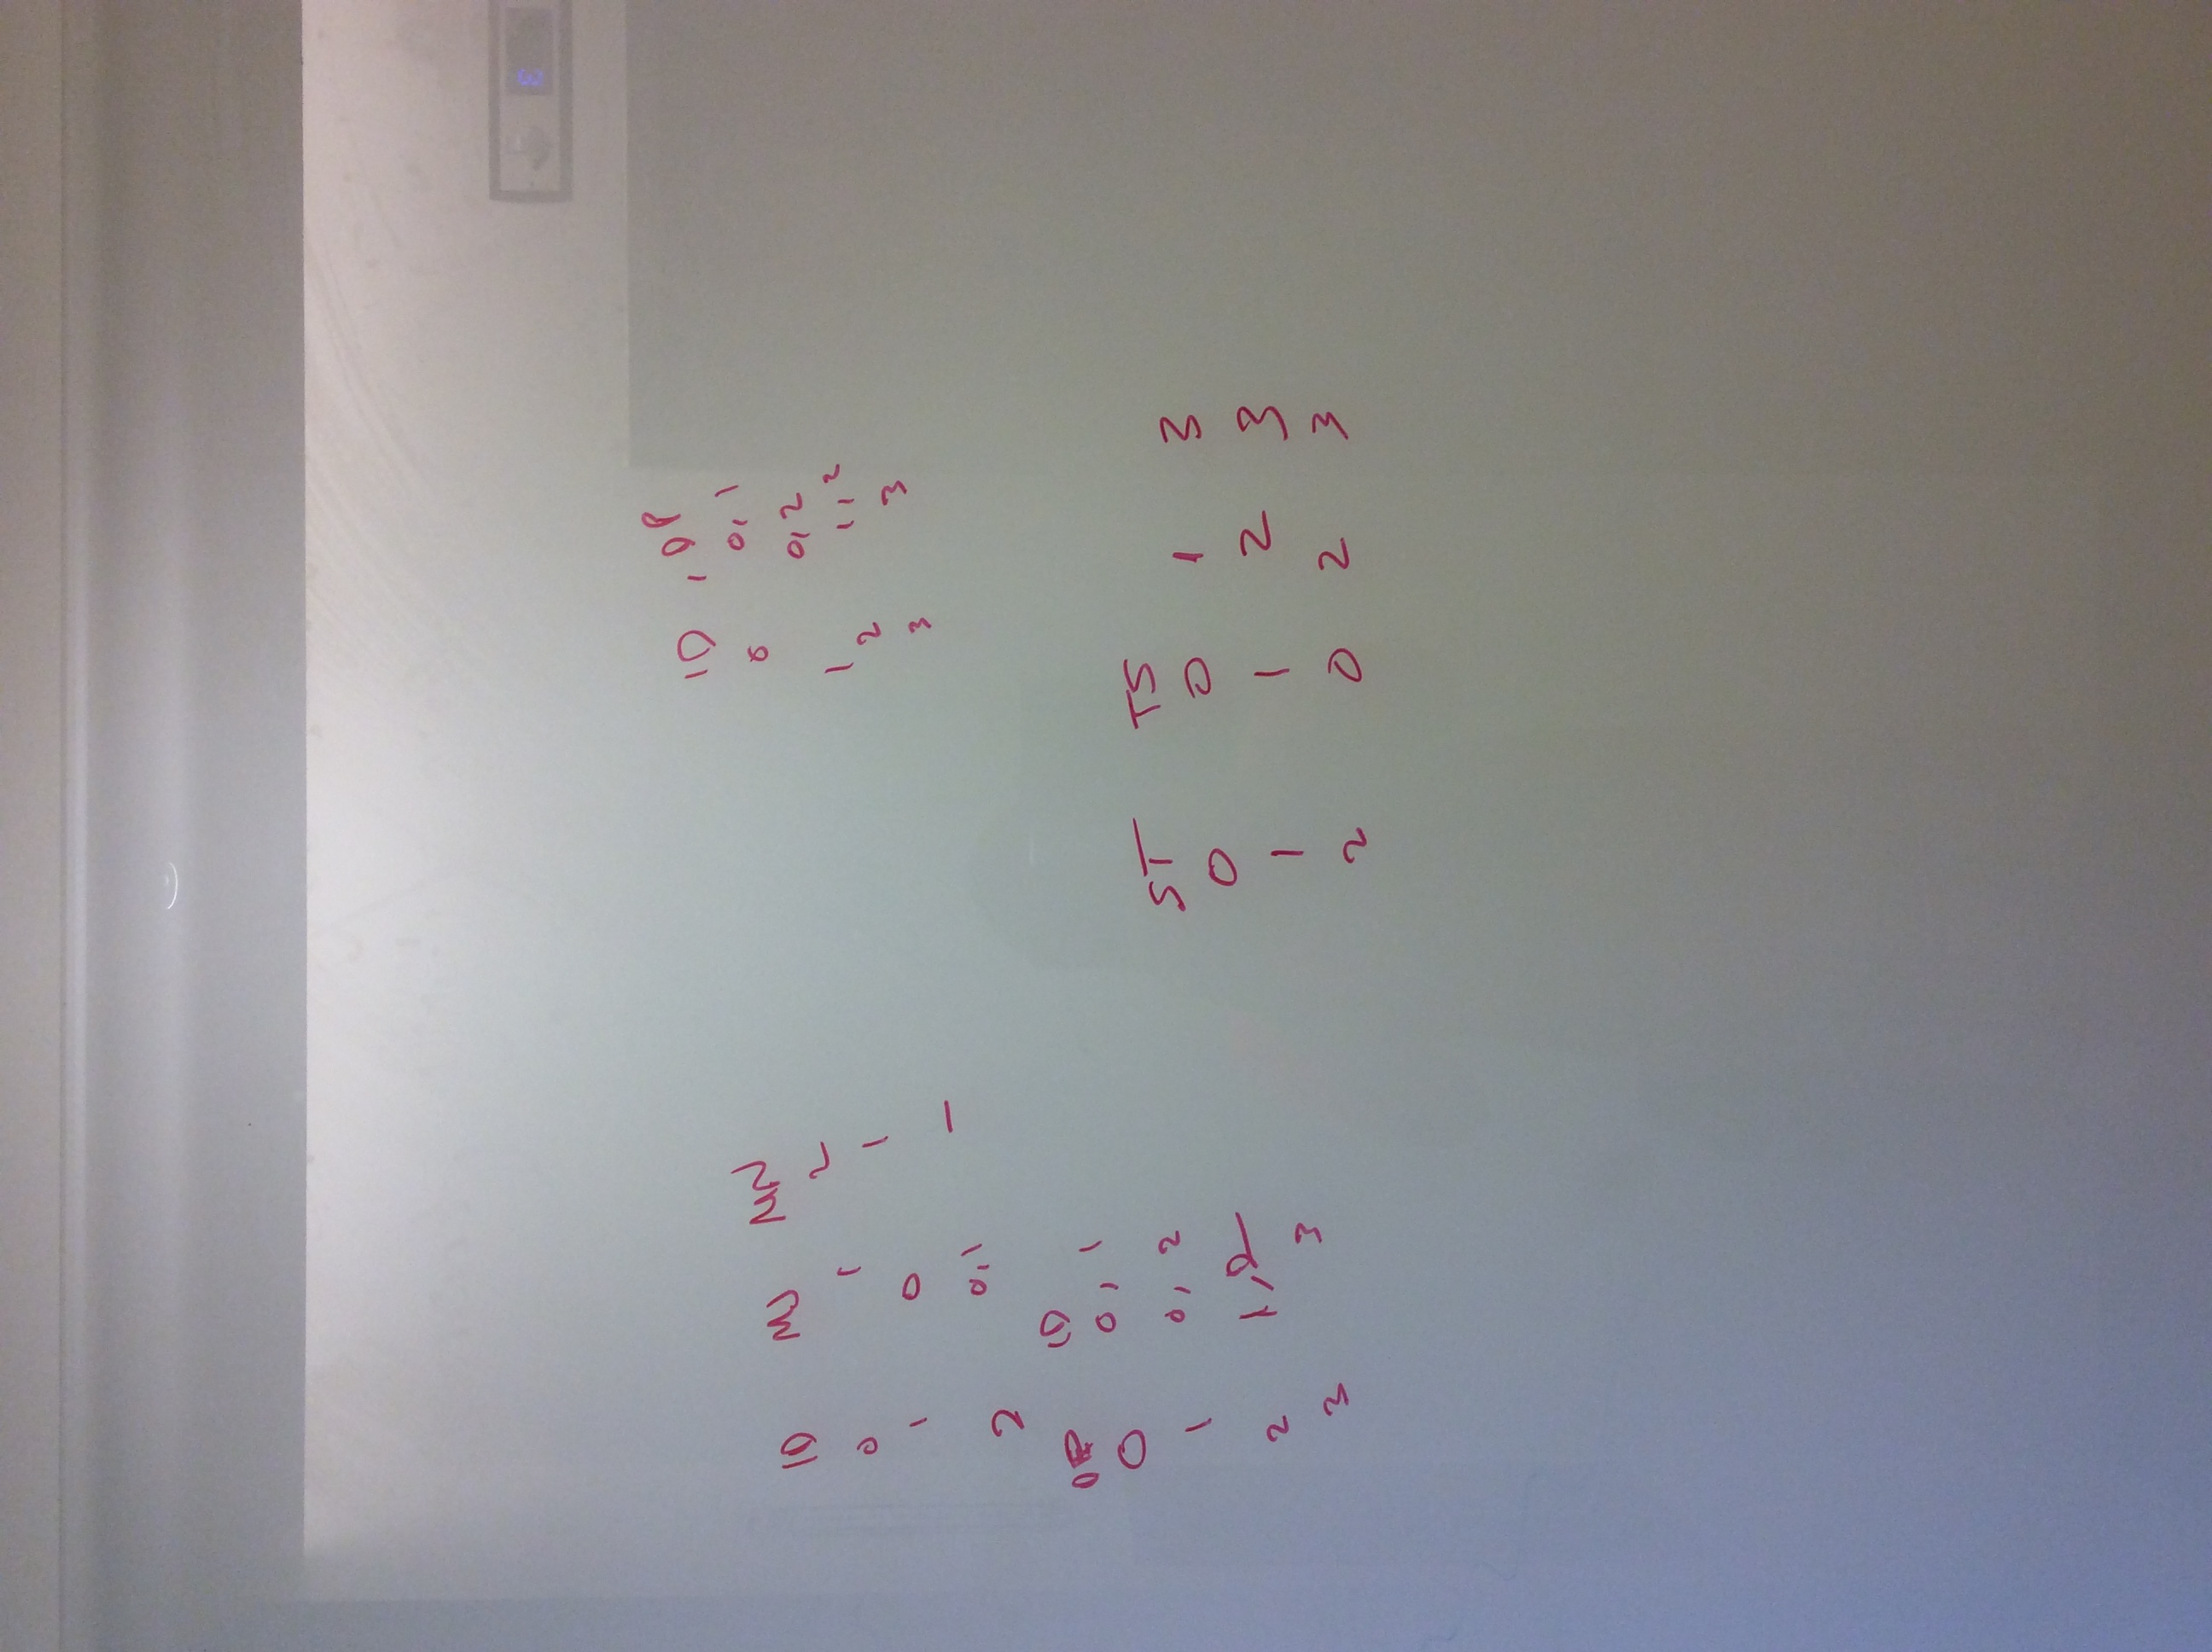 ID MJ MN
0 1 2
1 0 1
2 0,1 —
DP ID
0 0, 1
1 0, 2
2 1,2
3 3
ID , DP
0 0, 1
0, 2
1 1, 2
2 3
3
ST TS
0 0 1 3
1 1 2 3
2 0 2 3